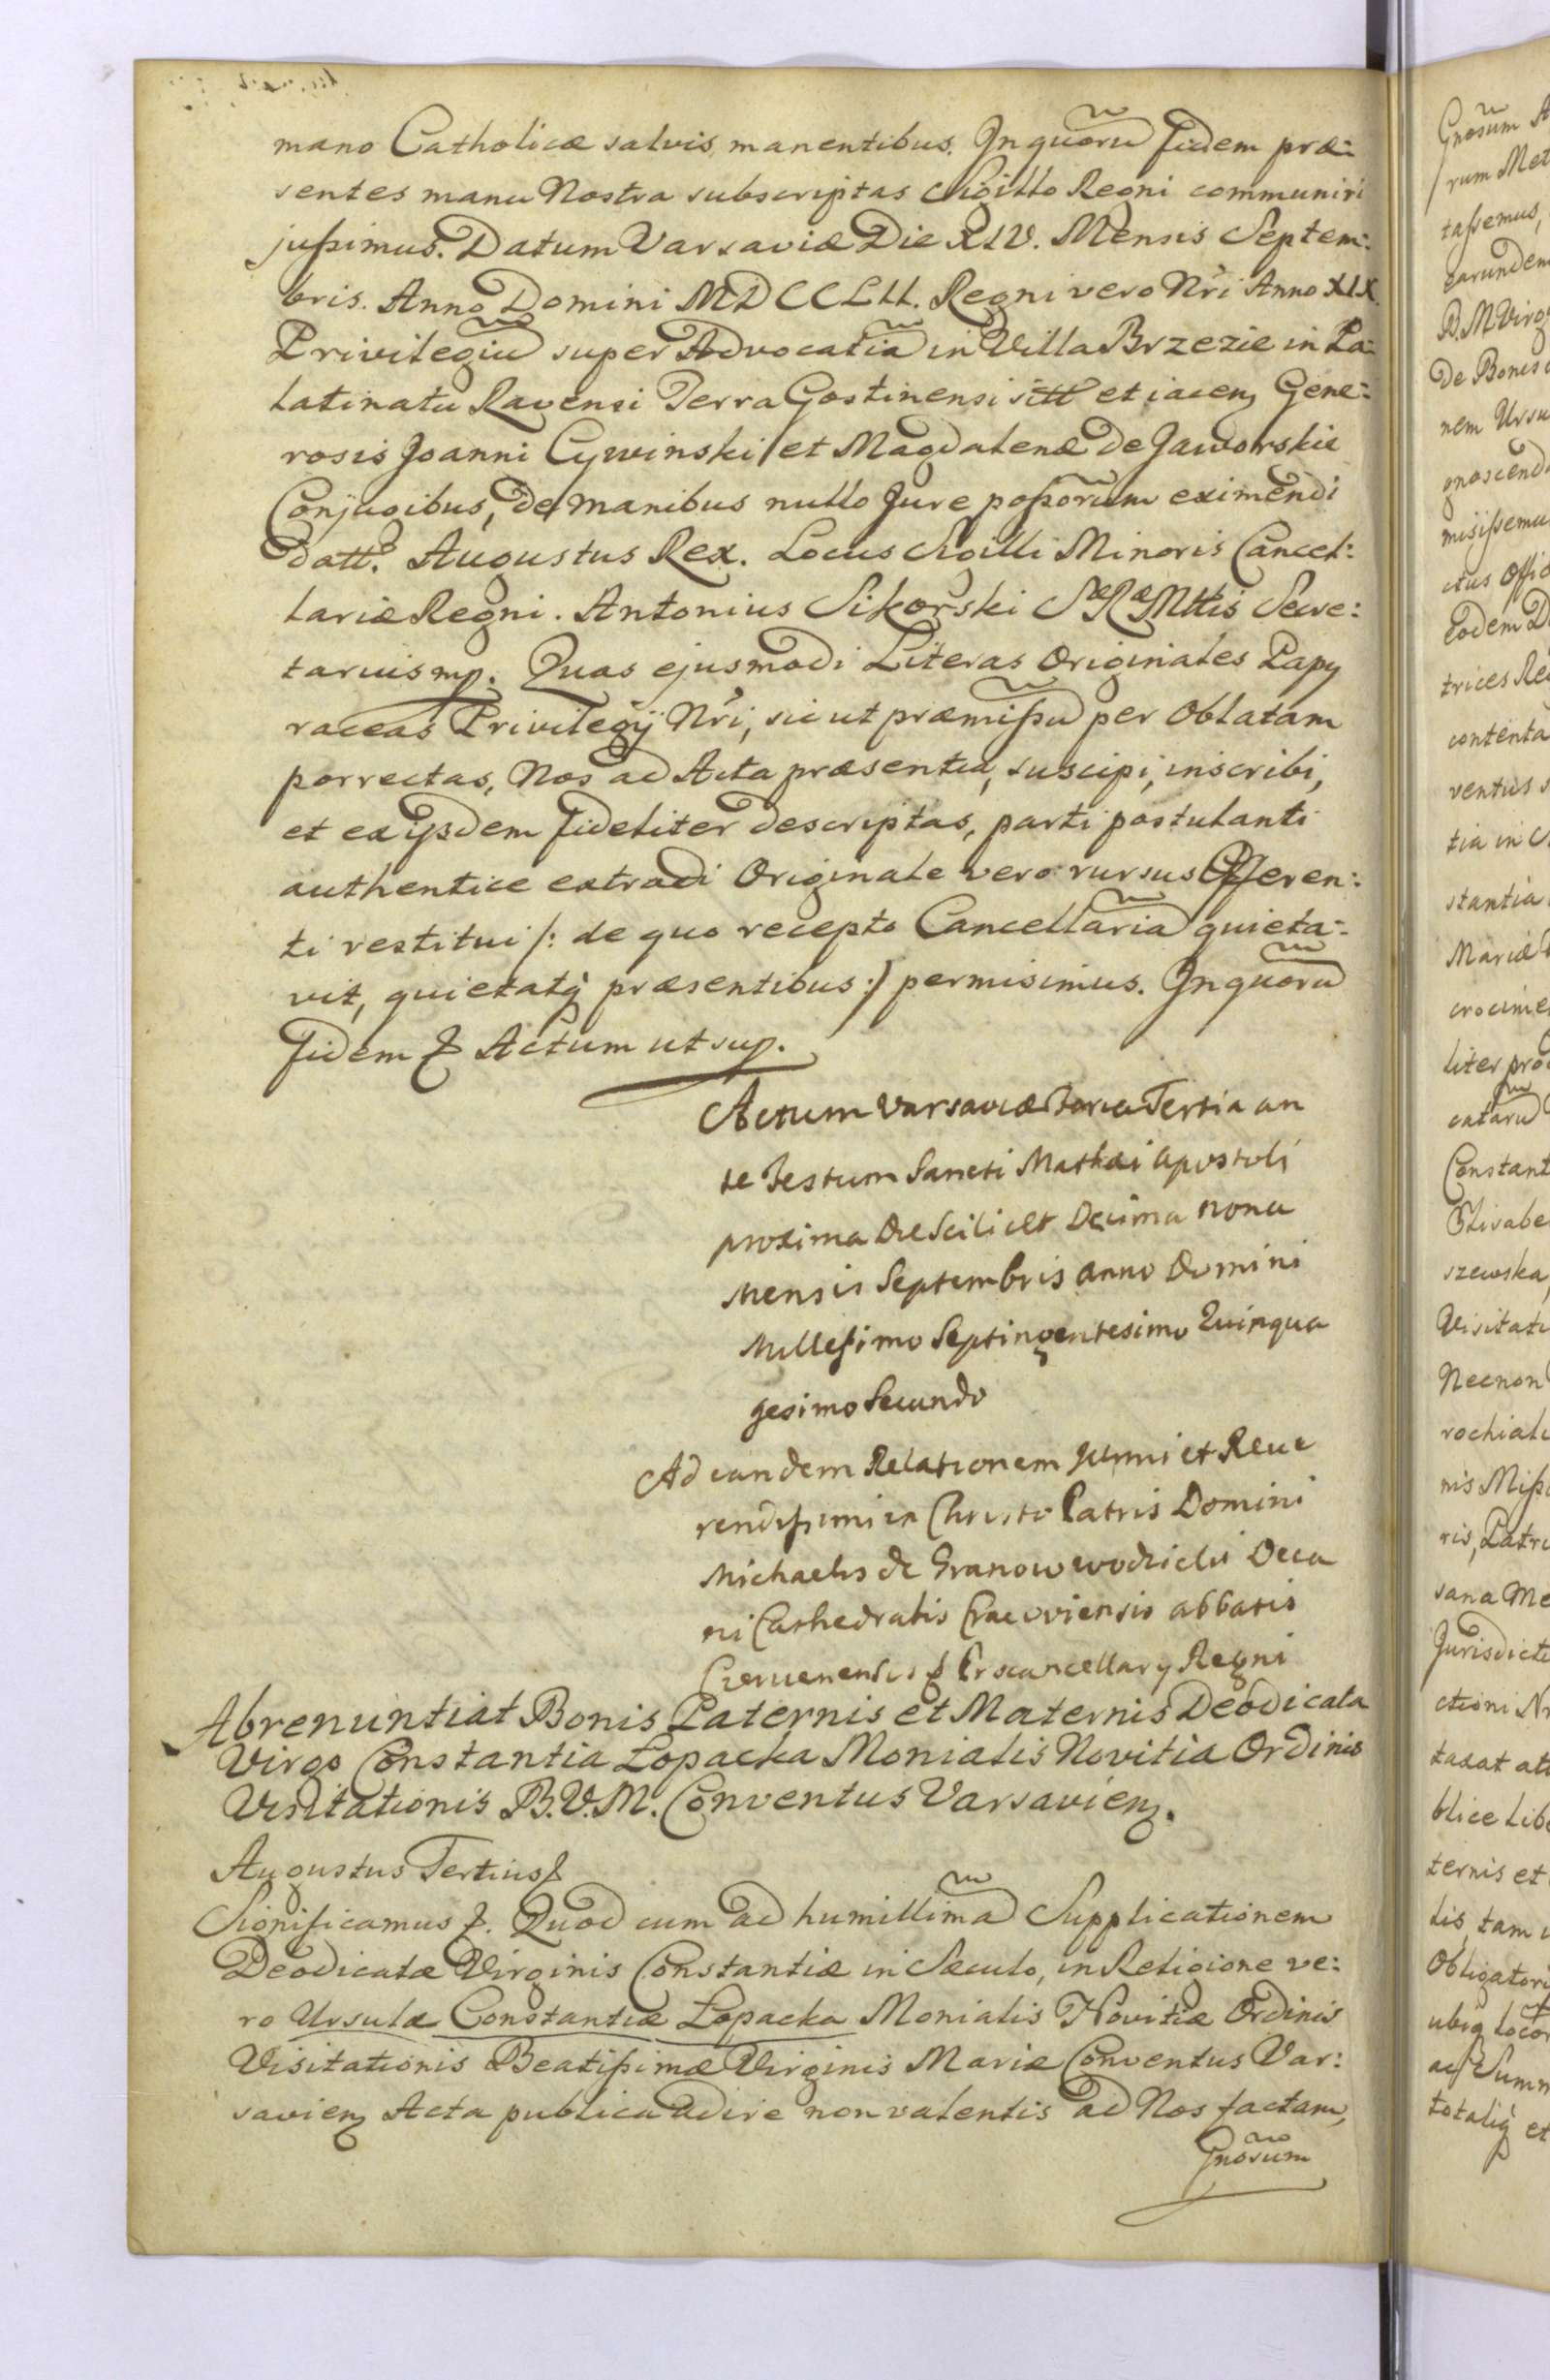 mano Catholicæ salvis manentibus. In quorũ fidem præ:
sentes manu Nostra subscriptas Sigillo Regni communiri
jußimus. Datum Varsaviæ Die XIV. Mensis Septem:
bris. Anno Domini MDCCLII. Regni vero Nr̃i Anno XIX.
Privilegiũ super Advocatiã in Villa Brzezie in Pa:
latinatu Ravensi Terra Gostinensi sitt et iacenȝ Gene:
rosis Joanni Cywinski et Magdalenæ de Jaworskie
Conjugibus, de manibus nullo Jure poßorum eximendi
datt. Augustus Rex. Locus Sigilli Minoris Cancel:
lariæ Regni. Antonius Sikorski SæRæMttis Secre:
tarius mp. Quas ejusmodi Literas Originales Papy
raceas Privilegÿ Nr̃i, sicut præmißũ per Oblatam
porrectas, Nos ad Acta præsentia, suscipi, inscribi,
et ex ijsdem fideliter descriptas, parti postulanti
authentice extradi Originale vero rursus Offeren:
ti restitui /: de quo recepto Cancellariã quieta:
vit, quietatq̃ præsentibus :/ permisimus. In quorũ
fidem & Actum ut sup.
Actum Varsaviæ Feria Tertia an
te Festum Sancti Mathæi Apostoli
proxima Die Scilicet Decima nona
Mensis Septembris Anno Domini
Millesimo Septingentesimo Quinqua
gesimo Secundo
Ad eandem Relationem Illmi et Reve
rendißimi in Christo Patris Domini
Michaelis de Granow Wodzicki Deca
ni Cathedralis Cracoviensis Abbatis
Czervenensis & Procancellarÿ Regni
Abrenuntiat Bonis Paternis et Maternis Deodicata
Virgo Constantia Lopacka Monialis Novitia Ordinis
Visitationis B.V.M. Conventus Varsavienȝ.
Augustus Tertius &
Significamus &. Quod cum ad humillimã Supplicationem
Deodicatæ Virginis Constantiæ in Sæculo, in Religione ve:
ro Ursulæ Constantiæ Lopacka Monialis Novitiæ Ordinis
Visitationis Beatißimæ Virginis Mariæ Conventus Var:
savienȝ Acta publica adire non valentis ad Nos factam,
Gnõsum
Gnõsum
rum Met
taßemus,
earundem
B. M Virg
de Bonis
nem Ursu
gnoscend
misißemu
Eodem D
trices Re
contenta
ventus
tia in
stantia
Mariæ
liter pro
catarũ
Constant
Elisabe
szewska,
Visitati
Necnon
rochiali
nis Mißi
ris, Patri
sana Me
Jurisdicti
ctioni N
taxat at
blice Libe
ternis et
lis, tam
Obligatori
ubiq̃ loco
ac Summ
totaliq̃ et